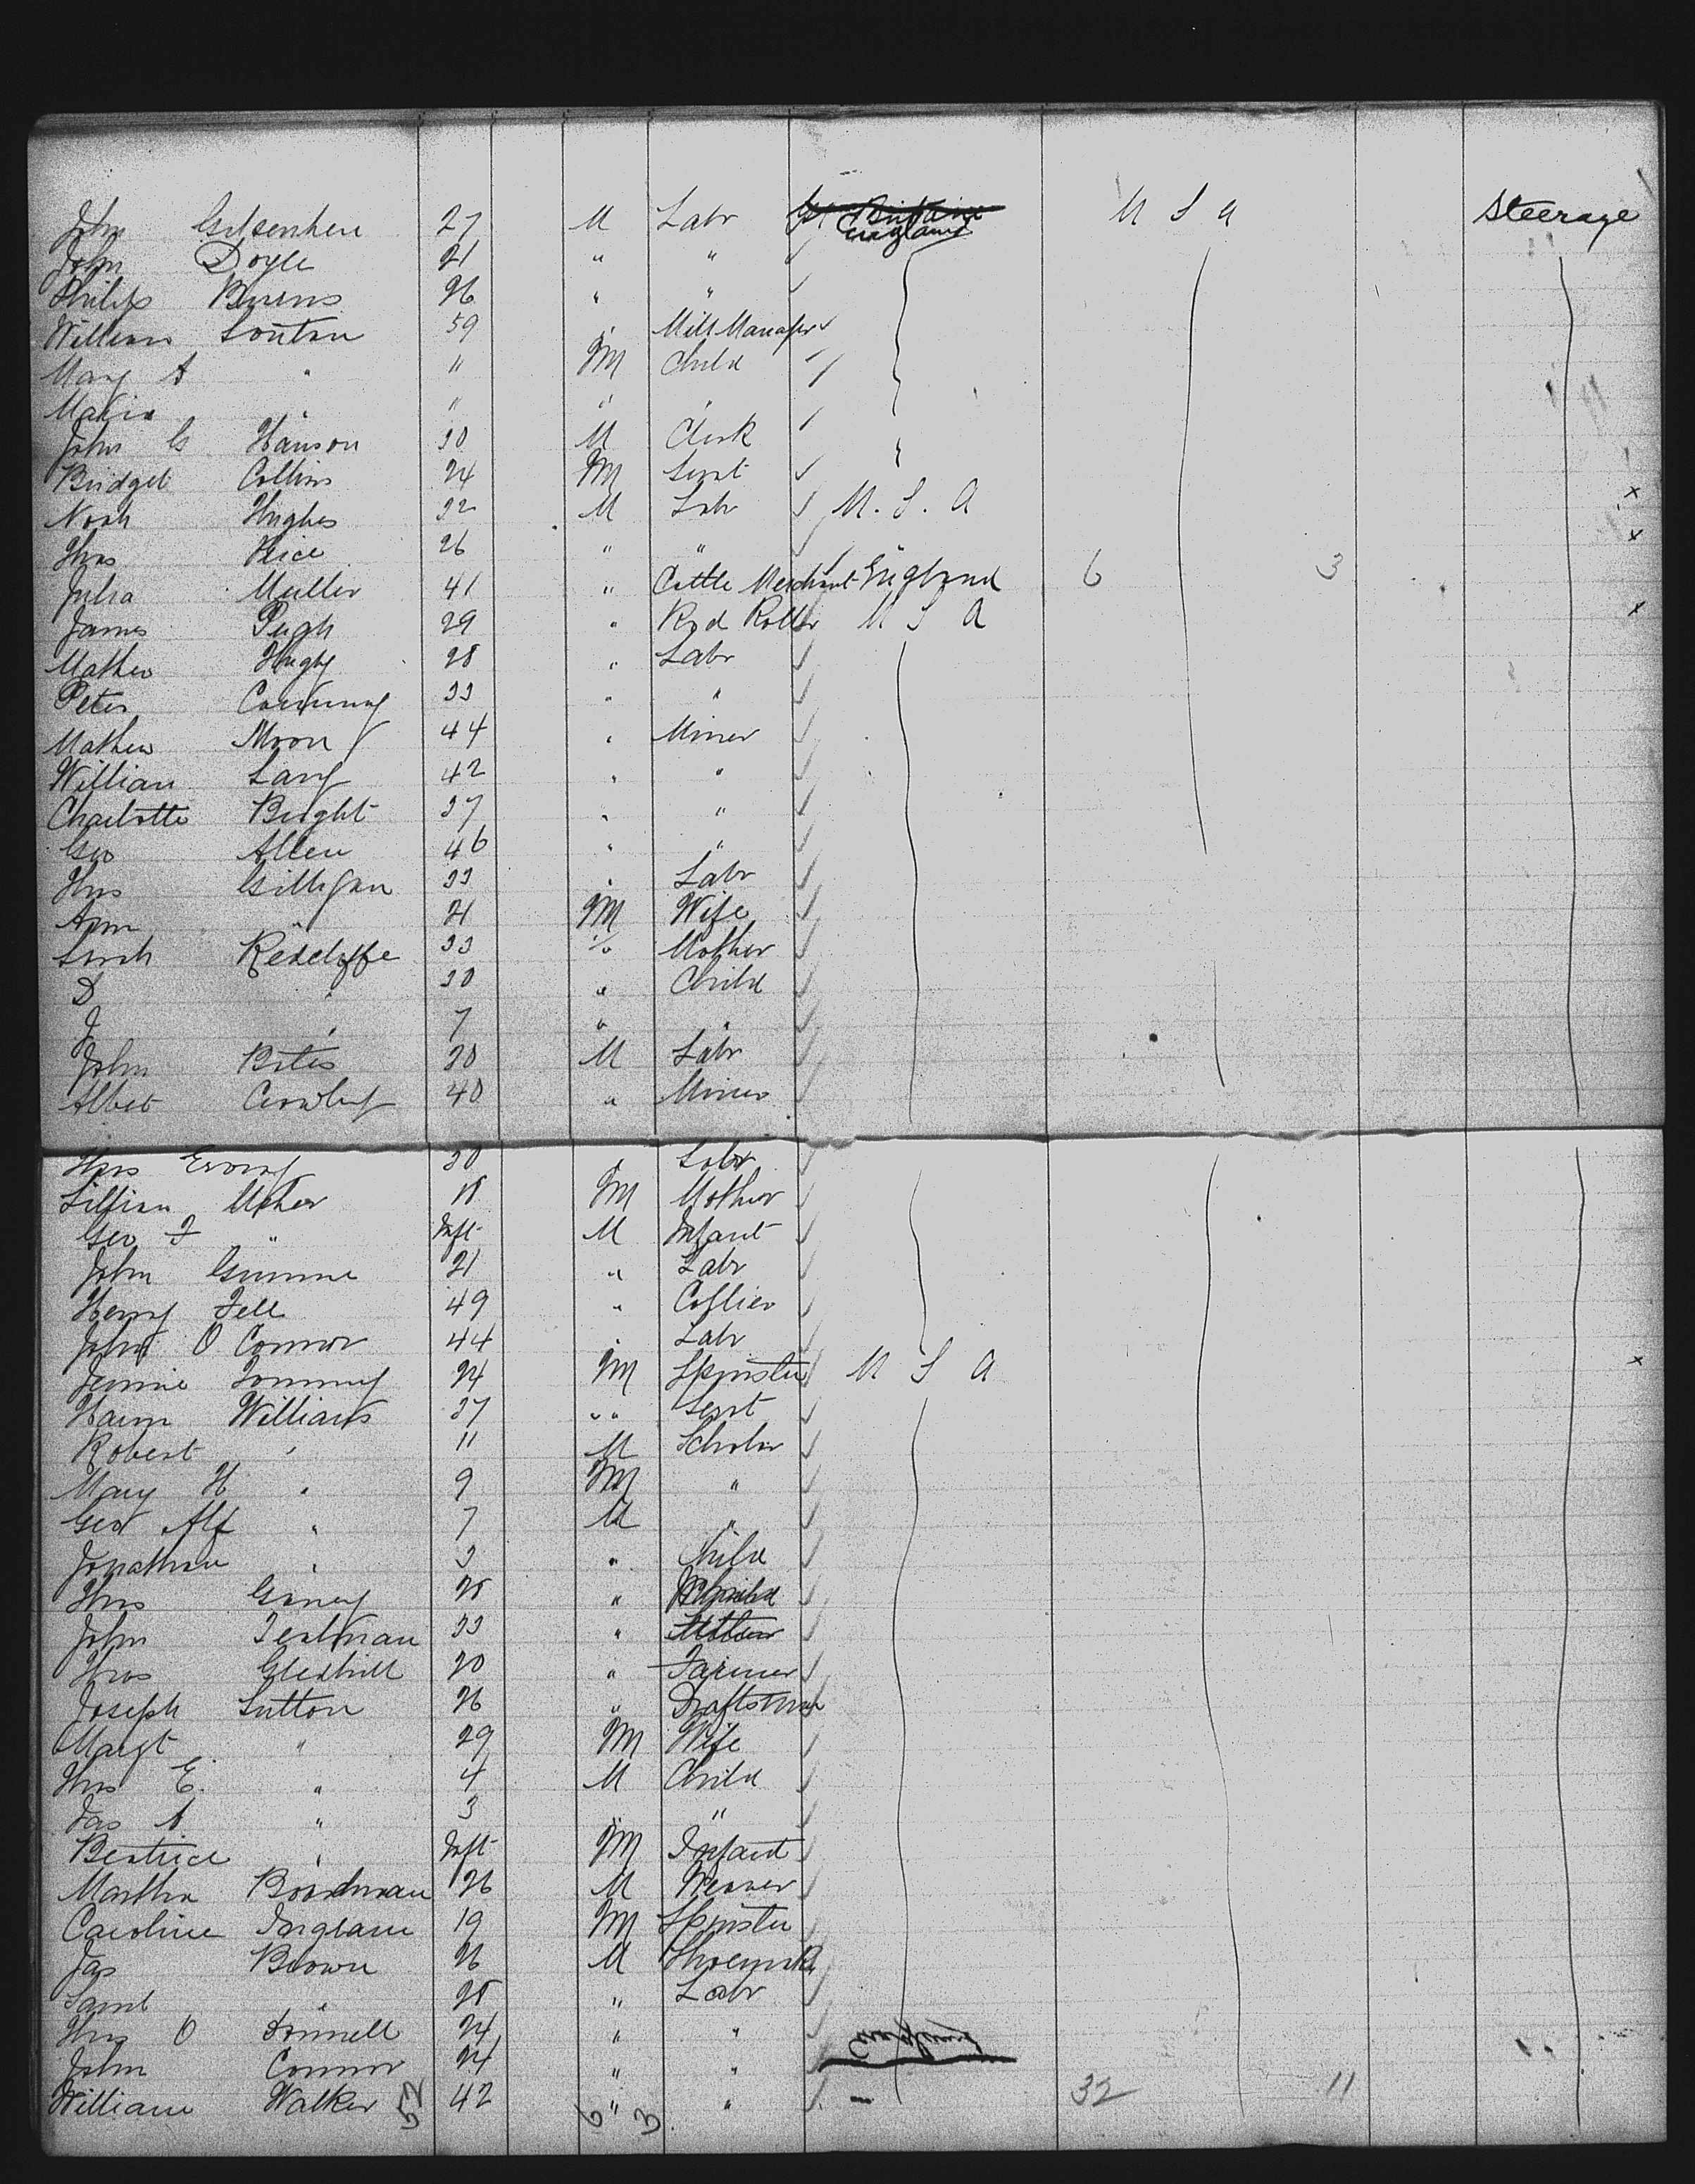 John 27 M Labr England U S A Steerage
John Doyle 21 " "
Philip 26 " "
William 59 " Mill Manager
Mary A " " M Child
Maria " " " "
John G Hanson 30 M Clerk
Bridget Collins 24 M Servt
Noah Hughes 32 M Labr U. S. A x
Thos Price 26 " " x
Julia Muller 41 " Cattle Merchant England 6 3
James Pugh 29 " Rod Roller U S A x
Mathew 28 " Labr
Peter 33 " "
Mathew Moon 44 " Miner
William Lang 42 " "
Charlotte Bright 37 " "
Geo Allen 46 " "
Thos Gilligan 33 " Labr
Ann " 21 M Wife
Sarah Redclyffe 33 " Mother
D " 30 " Child
J " 7 " "
John Bates 20 M Labr
Albert Crowley 40 " Miner
Thos 30 " Labr
Lillian Maher 18 M Mother
Geo F " Inft M Infant
John 21 " Labr
Henry Fell 49 " Collier
John O Connor 44 " Labr
Jennie 24 M Spinster U S A x
Williams 37 " " Servt
Robert " 11 M Scholar
Mary H " 9 M "
Geo Alf " 7 M "
Jonathan " 3 " Child
Thos 28 "
John 33 "
Thos Gledhill 20 " Farmer
Joseph Sutton 26 " Draftsman
Margt " 29 M Wife
Thos E. " 4 M Child
Jas A " 3 " "
Beatrice " Inft M Infant
Martha Boardman 26 M Weaver
Caroline 19 M Spinster
Jas Brown 26 M Shoemkr
Saml " 28 " Labr
Thos O Donnell 24 " "
John Connor 24 " "
William Walker 52 42 6 " 3 " 32 11